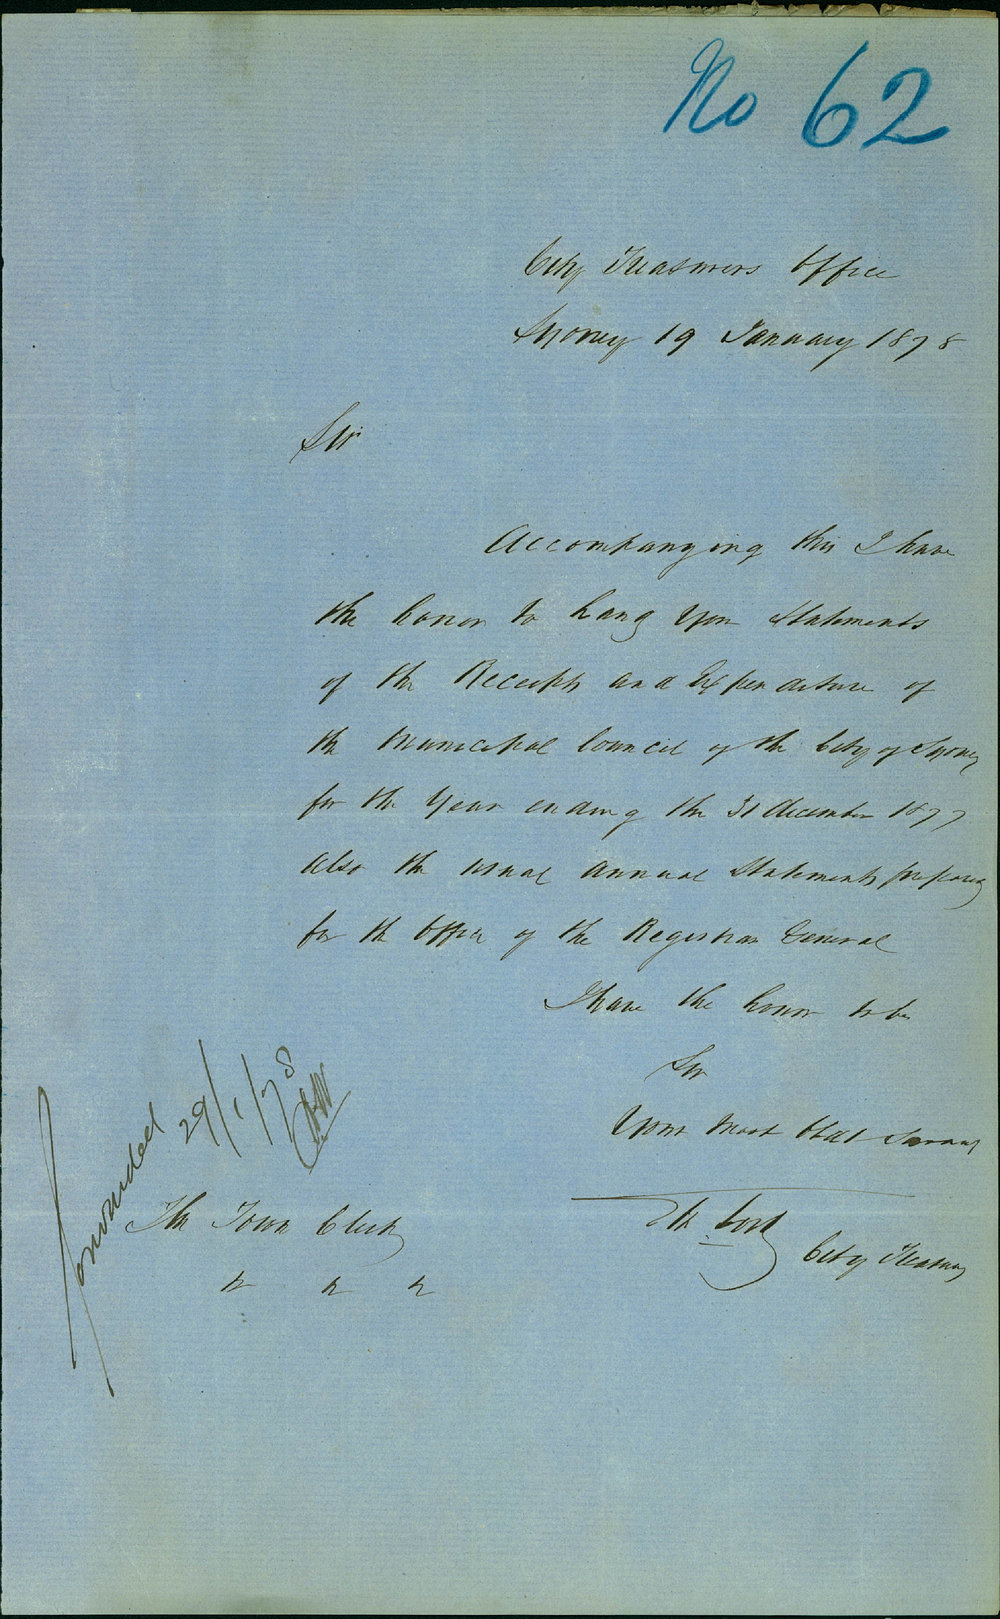 No 62
City Treasurers Office
Sydney 19 January 1878
Sir
Accompanying this I have
the honor to hand you Statements
of the Receipts and Expenditure of
the Municipal Council of the City of Sydney
for the Year ending the 31 December 1877
also the usual annual Statements prepared
for the Office of the Registrar General
I have the honor to be
Sir
Your most Obdt Servant
Forwarded 29/1/78
The Town Clerk
Lord
City Treasurer